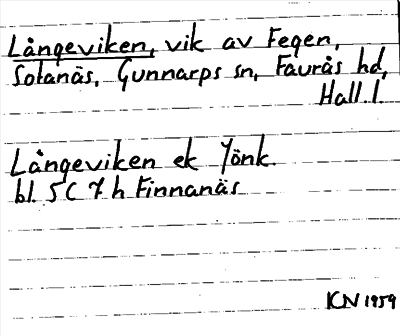 Långeviken, vik av Fegen,
Solanäs, Gunnarps sn, Faurås hd,
Hall. l.
Långeviken ek Jönk.
bl. 5C 7 h Finnanäs
KN 1959